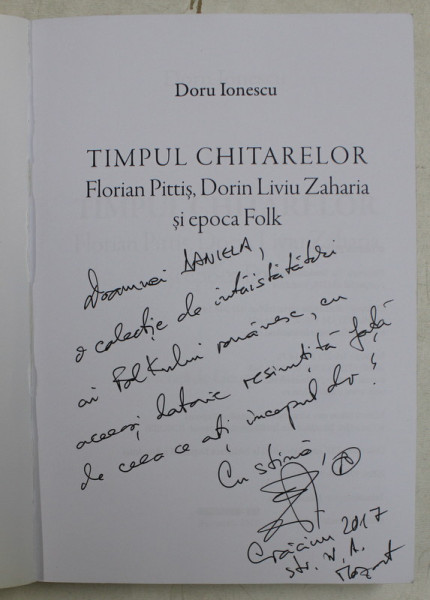 Doru Ionescu
TIMPUL CHITARELOR
Florian Pittiș, Dorin Liviu Zaharia
și epoca Folk
Doamnei DANIELA,
o colecție de întâistătători
ai Folkului românesc, cu
aceeași datorie resimțită față
de ceea ce ați început dv!
Cu stimă,
Crăciun 2017
str. W. A.
Mozart